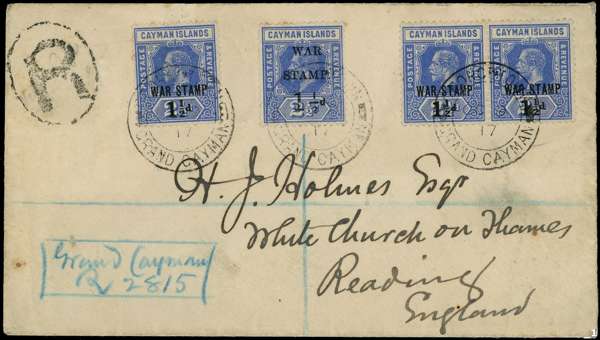 R
CAYMAN ISLANDS
POSTAGE
& REVENUE
WAR STAMP
1½d
CAYMAN ISLANDS
POSTAGE
& REVENUE
WAR
STAMP
1½d
CAYMAN ISLANDS
POSTAGE
& REVENUE
WAR STAMP
1½d
CAYMAN ISLANDS
POSTAGE
& REVENUE
WAR STAMP
1½d
GEORGETOWN
17
GRAND CAYMAN
17
GRAND CAYMAN
GEORGETOWN
17
GRAND CAYMAN
H. J. Holmes Esqr
White Church on Thames
Reading
England
Grand Cayman
R 2815